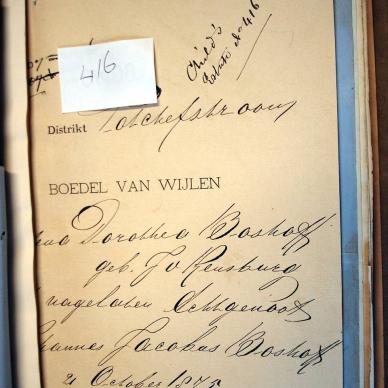 Child's
Estate No 416
416
Distrikt Potchefstroom
BOEDEL VAN WIJLEN
Dorothea Boshoff
geb. J v Rensburg
nagelaten Echtgenoot
Jacobus Boshoff
2 October 1875